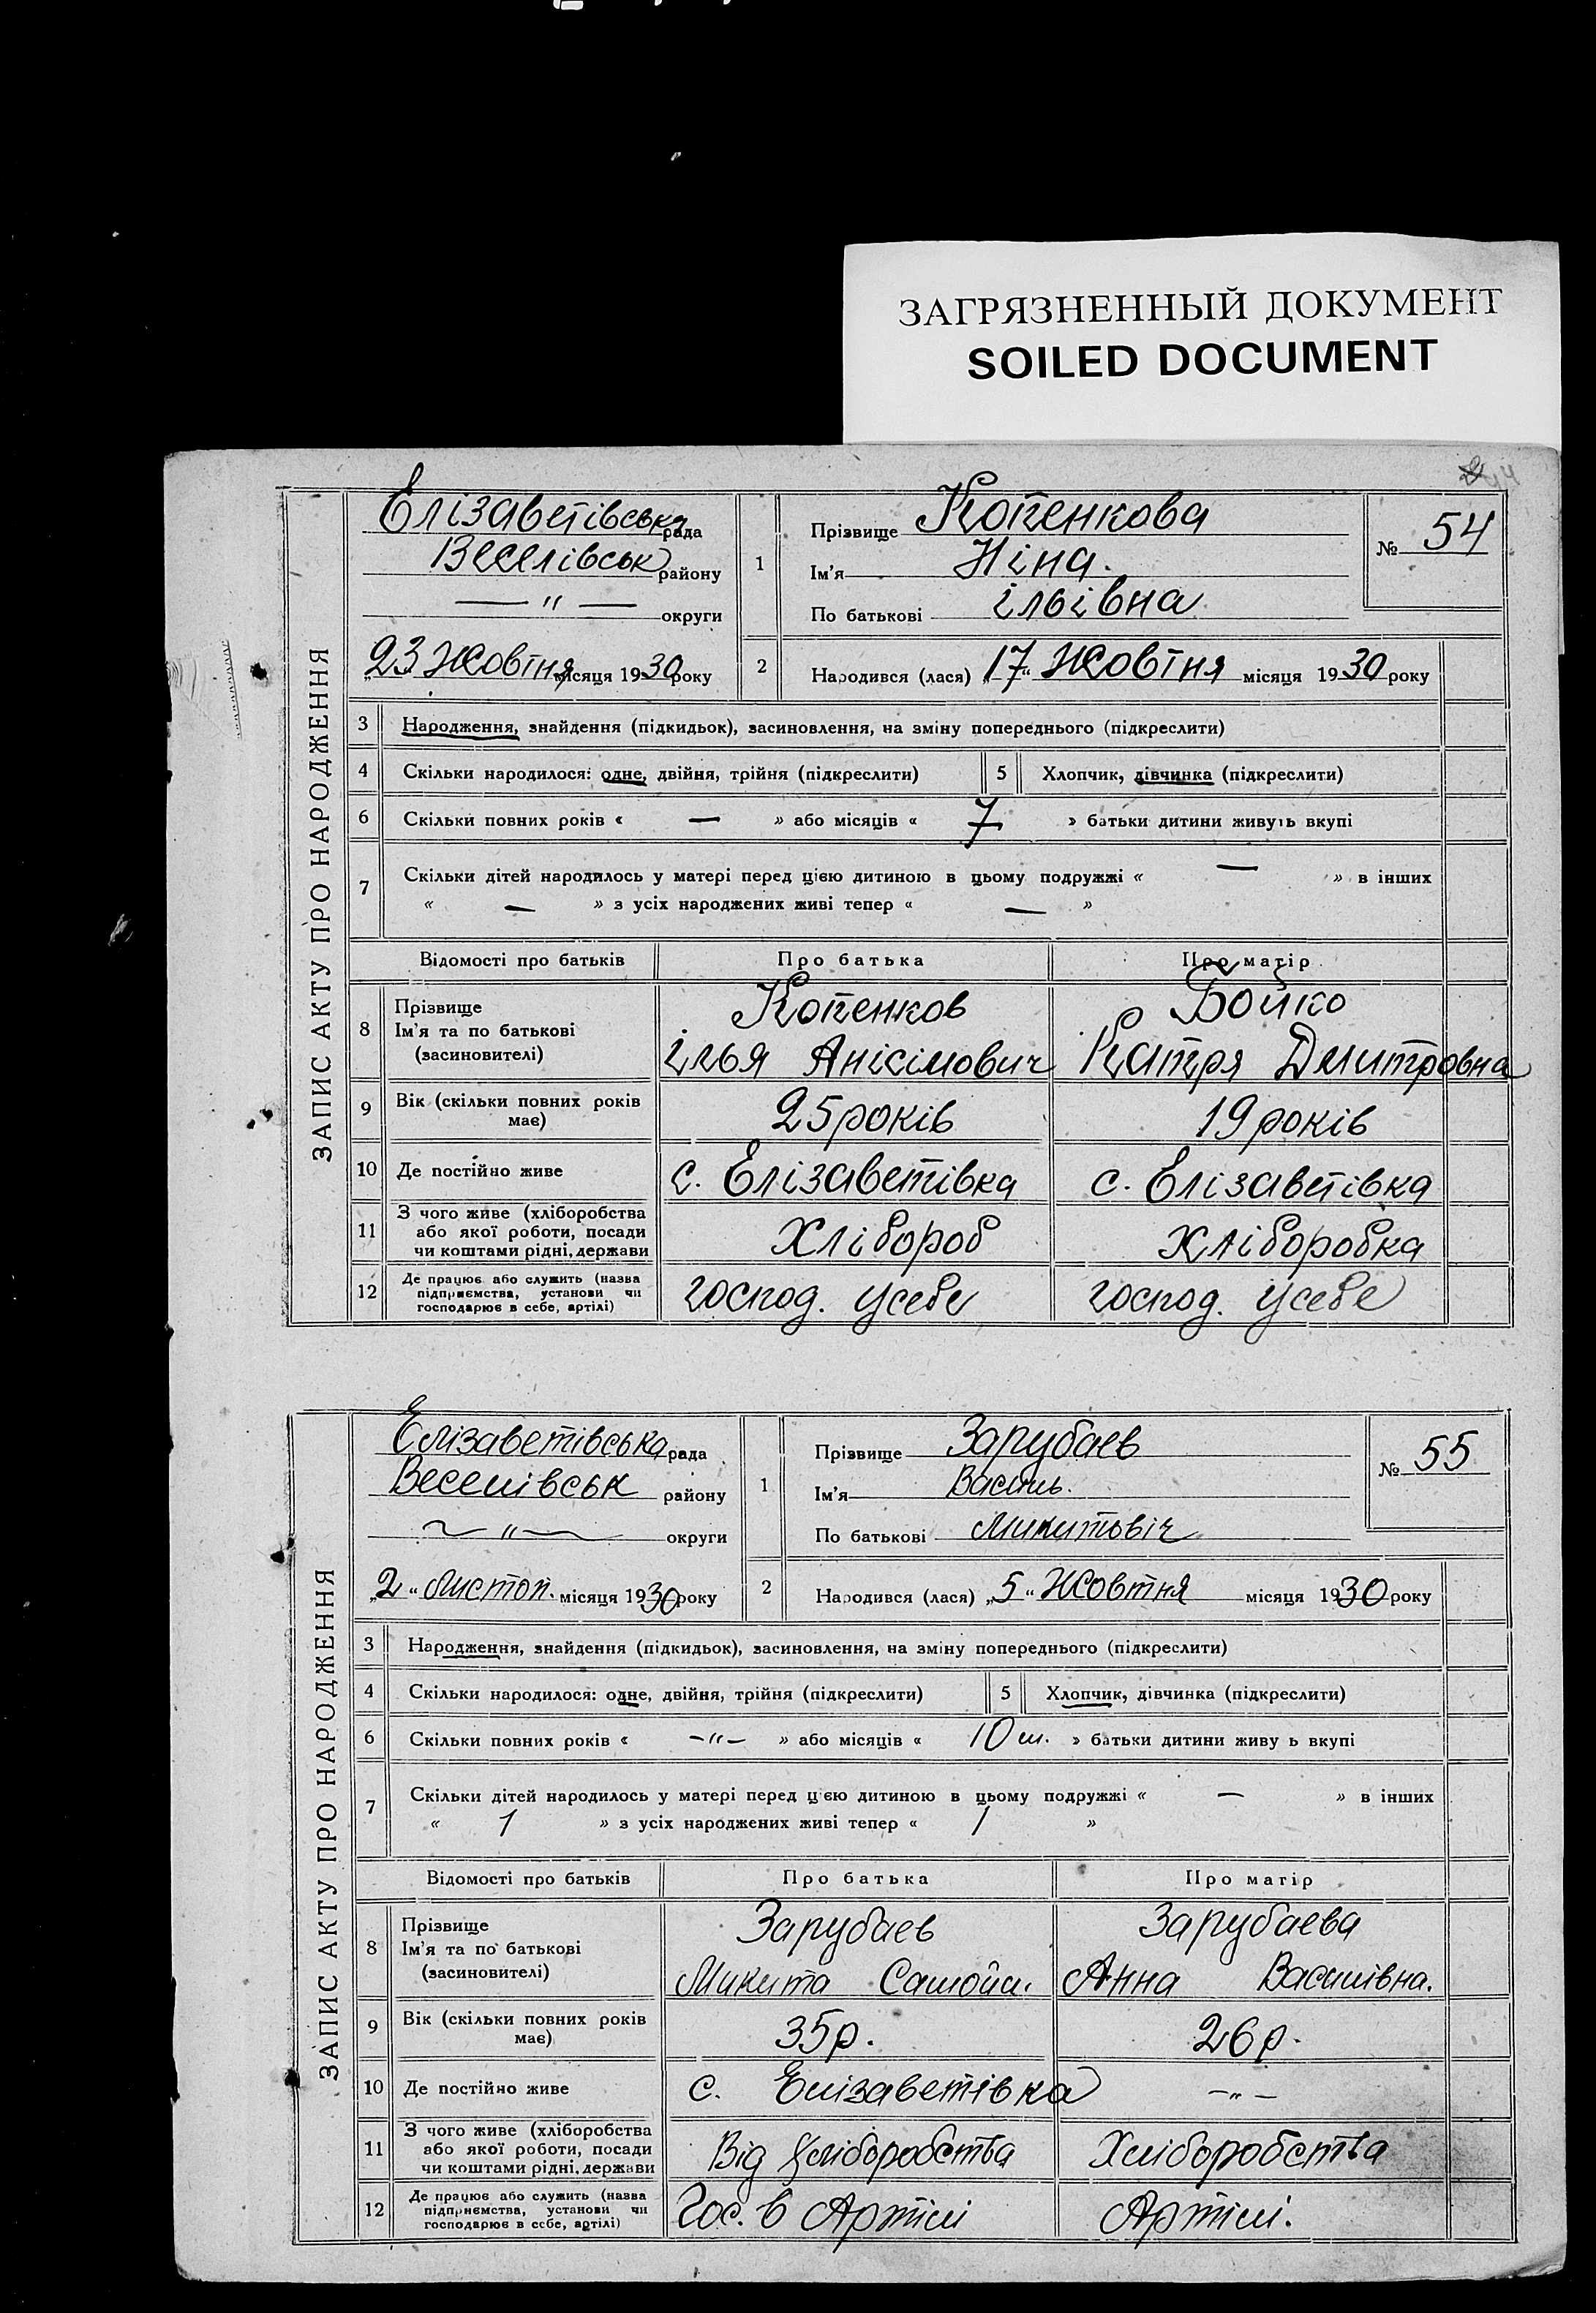 ЗАГРЯЗНЕННЫЙ ДОКУМЕНТ
SOILED DOCUMENT
ЗАПИС АКТУ ПРО НАРОДЖЕННЯ
Елізаветівська рада
Веселівськ району
— " — округи
„23 Жовтня місяця 1930 року
1 Прізвище Копенкова
Ім'я Ніна.
По батькові ільівна
№ 54
2 Народився (лася) „17“ Жовтня місяця 1930 року
3 Народження, знайдення (підкидьок), засиновлення, на зміну попереднього (підкреслити)
4 Скільки народилося: одне, двійня, трійня (підкреслити) 5 Хлопчик, дівчинка (підкреслити)
6 Скільки повних років « — » або місяців « 7 » батьки дитини живуть вкупі
7 Скільки дітей народилось у матері перед цією дитиною в цьому подружжі « — » в інших
« — » з усіх народжених живі тепер « — »
Відомості про батьків Про батька Про матір
8 Прізвище Копенков Бойко
Ім'я та по батькові
(засиновителі) ілья Анісімович Катря Дмитровна
9 Вік (скільки повних років має) 25 років 19 років
10 Де постійно живе с. Елізаветівка с. Елізаветівка
11 З чого живе (хліборобства
або якої роботи, посади Хлібороб Хліборобка
чи коштами рідні, держави
12 Де працює або служить (назва
підприємства, установи чи господ. усебе господ. усебе
господарює в себе, артілі)
ЗАПИС АКТУ ПРО НАРОДЖЕННЯ
Елізаветівська рада
Веселівськ району
— " — округи
„2“ Листоп. місяця 1930 року
1 Прізвище Зарубаев
Ім'я Василь.
По батькові Микитовіч
№ 55
2 Народився (лася) „5“ Жовтня місяця 1930 року
3 Народження, знайдення (підкидьок), засиновлення, на зміну попереднього (підкреслити)
4 Скільки народилося: одне, двійня, трійня (підкреслити) 5 Хлопчик, дівчинка (підкреслити)
6 Скільки повних років « –"– » або місяців « 10 м. » батьки дитини живу ь вкупі
7 Скільки дітей народилось у матері перед цією дитиною в цьому подружжі « — » в інших
« 1 » з усіх народжених живі тепер « 1 »
Відомості про батьків Про батька Про матір
8 Прізвище Зарубаев Зарубаева
Ім'я та по батькові
(засиновителі) Микита Самойл. Анна Василівна.
9 Вік (скільки повних років має) 35 р. 26 р.
10 Де постійно живе с. Елізаветівка –"–
11 З чого живе (хліборобства
або якої роботи, посади Від хліборобства Хліборобства
чи коштами рідні, держави
12 Де працює або служить (назва
підприємства, установи чи Гос. в Артілі Артілі.
господарює в себе, артілі)